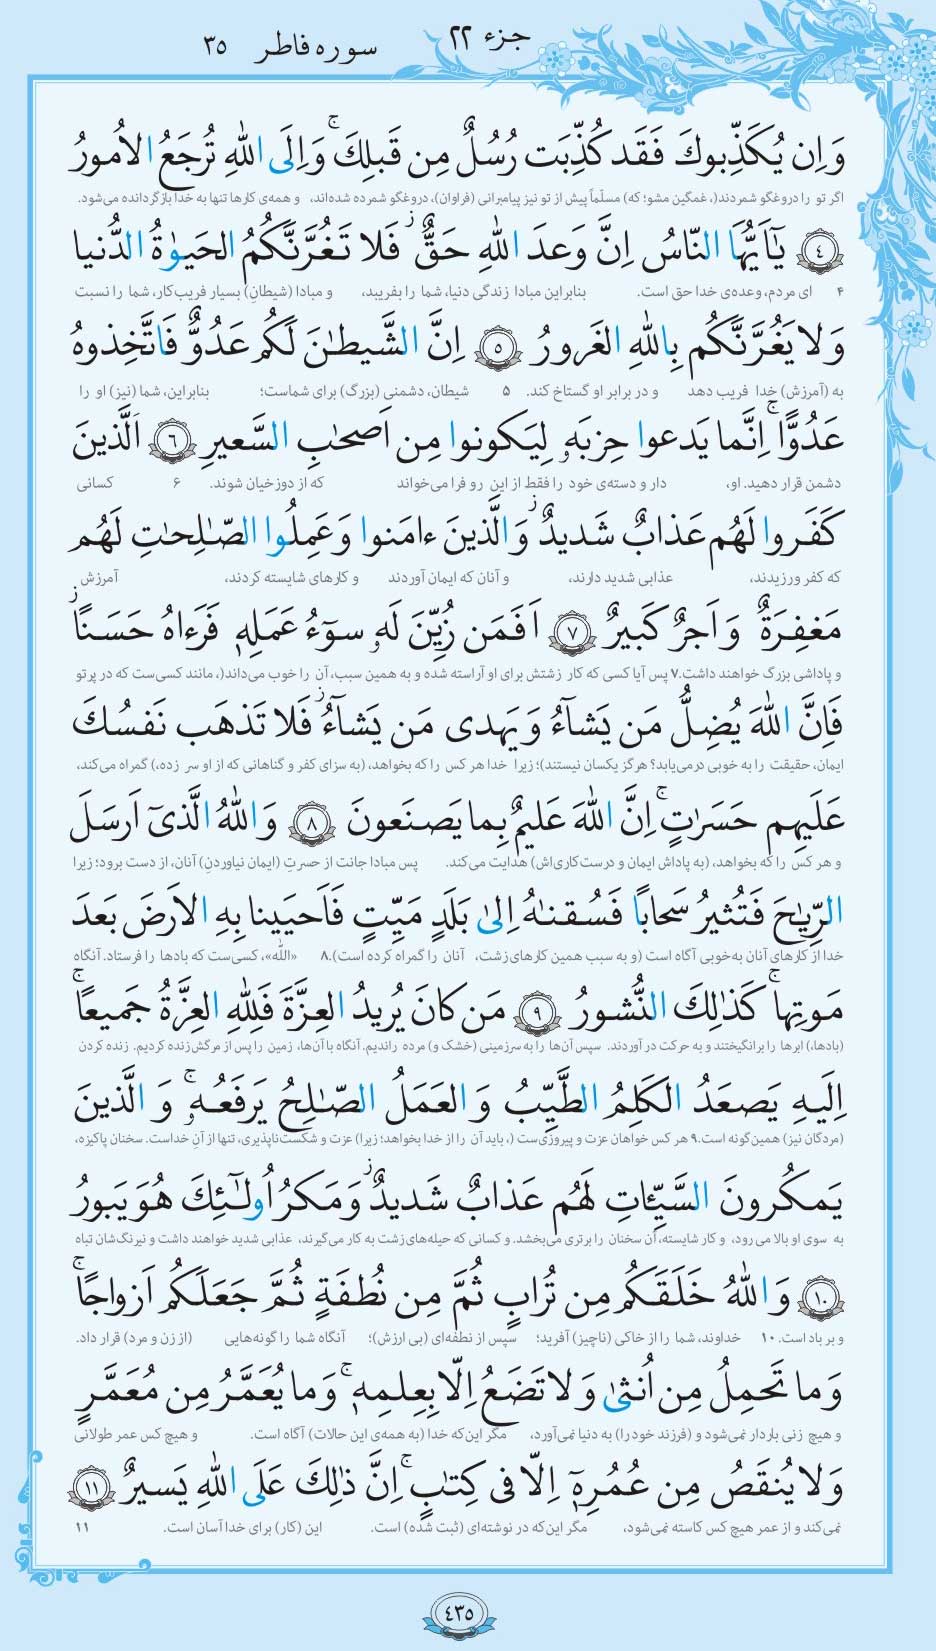 جزء ۲۲
سوره فاطر ۳۵
وَاِن يُكَذِّبوكَ فَقَد كُذِّبَت رُسُلٌ مِن قَبلِكَ ۚ وَاِلَى اللهِ تُرجَعُ الاُمورُ
اگر تو را دروغگو شمردند(، غمگین مشو؛ که) مسلّماً پیش از تو نیز پیامبرانی (فراوان)، دروغگو شمرده شده‌اند، و همه‌ی کارها تنها به خدا بازگردانده می‌شود.
﴿٤﴾ يٰٓاَيُّهَا النّاسُ اِنَّ وَعدَ اللهِ حَقٌّ ۖ فَلا تَغُرَّنَّكُمُ الحَيوٰةُ الدُّنيا
۴ ای مردم، وعده‌ی خدا حق است. بنابراین مبادا زندگی دنیا، شما را بفریبد، و مبادا (شیطانِ) بسیار فریب‌کار، شما را نسبت
وَلا يَغُرَّنَّكُم بِاللهِ الغَرورُ ﴿٥﴾ اِنَّ الشَّيطٰنَ لَكُم عَدُوٌّ فَاتَّخِذوهُ
به (آمرزش) خدا فریب دهد و در برابر او گستاخ کند. ۵ شیطان، دشمنی (بزرگ) برای شماست؛ بنابراین، شما (نیز) او را
عَدُوًّا ۚ اِنَّما يَدعوا حِزبَهٗ لِيَكونوا مِن اَصحٰبِ السَّعيرِ ﴿٦﴾ اَلَّذينَ
دشمن قرار دهید. او، دار و دسته‌ی خود را فقط از این رو فرا می‌خواند که از دوزخیان شوند. ۶ کسانی
كَفَروا لَهُم عَذابٌ شَديدٌ ۖ وَالَّذينَ ءامَنوا وَعَمِلُوا الصّٰلِحٰتِ لَهُم
که کفر ورزیدند، عذابی شدید دارند، و آنان که ایمان آوردند و کارهای شایسته کردند، آمرزش
مَغفِرَةٌ وَاَجرٌ كَبيرٌ ﴿٧﴾ اَفَمَن زُيِّنَ لَهٗ سوٓءُ عَمَلِهٖ فَرَءاهُ حَسَنًا ۖ
و پاداشی بزرگ خواهند داشت.۷ پس آیا کسی که کار زشتش برای او آراسته شده و به همین سبب، آن را خوب می‌داند(، مانند کسی‌ست که در پرتو
فَاِنَّ اللهَ يُضِلُّ مَن يَشآءُ وَيَهدى مَن يَشآءُ ۖ فَلا تَذهَب نَفسُكَ
ایمان، حقیقت را به خوبی درمی‌یابد؟ هرگز یکسان نیستند)؛ زیرا خدا هر کس را که بخواهد، (به سزای کفر و گناهانی که از او سر زده،) گمراه می‌کند،
عَلَيهِم حَسَرٰتٍ ۚ اِنَّ اللهَ عَليمٌ بِما يَصنَعونَ ﴿٨﴾ وَاللهُ الَّذىٓ اَرسَلَ
و هر کس را که بخواهد، (به پاداش ایمان و درست‌کاری‌اش) هدایت می‌کند. پس مبادا جانت از حسرتِ (ایمان نیاوردنِ) آنان، از دست برود؛ زیرا
الرِّيٰحَ فَتُثيرُ سَحابًا فَسُقنٰهُ اِلىٰ بَلَدٍ مَيِّتٍ فَاَحيَينا بِهِ الاَرضَ بَعدَ
خدا از کارهای آنان به‌خوبی آگاه است (و به سبب همین کارهای زشت، آنان را گمراه کرده است).۸ «الله»، کسی‌ست که بادها را فرستاد. آنگاه
مَوتِها ۚ كَذٰلِكَ النُّشورُ ﴿٩﴾ مَن كانَ يُريدُ العِزَّةَ فَلِلّٰهِ العِزَّةُ جَميعًا ۚ
(بادها)، ابرها را برانگیختند و به حرکت در آوردند. سپس آن‌ها را به سرزمینی (خشک و) مرده راندیم. آنگاه با آن‌ها، زمین را پس از مرگش زنده کردیم. زنده کردن
اِلَيهِ يَصعَدُ الكَلِمُ الطَّيِّبُ وَالعَمَلُ الصّٰلِحُ يَرفَعُهٗ ۚ وَالَّذينَ
(مردگان نیز) همین‌گونه است.۹ هر کس خواهان عزت و پیروزی‌ست (، باید آن را از خدا بخواهد؛ زیرا) عزت و شکست‌ناپذیری، تنها از آنِ خداست. سخنان پاکیزه،
يَمكُرونَ السَّيِّـٔاتِ لَهُم عَذابٌ شَديدٌ ۖ وَمَكرُ اُولٰٓئِكَ هُوَ يَبورُ
به سوی او بالا می‌رود، و کار شایسته، آن سخنان را برتری می‌بخشد. و کسانی که حیله‌های زشت به کار می‌گیرند، عذابی شدید خواهند داشت و نیرنگ‌شان تباه
﴿١٠﴾ وَاللهُ خَلَقَكُم مِن تُرابٍ ثُمَّ مِن نُطفَةٍ ثُمَّ جَعَلَكُم اَزواجًا ۚ
و بر باد است. ۱۰ خداوند، شما را از خاکی (ناچیز) آفرید؛ سپس از نطفه‌ای (بی ارزش)؛ آنگاه شما را گونه‌هایی (از زن و مرد) قرار داد.
وَما تَحمِلُ مِن اُنثىٰ وَلا تَضَعُ اِلّا بِعِلمِهٖ ۚ وَما يُعَمَّرُ مِن مُعَمَّرٍ
و هیچ زنی باردار نمی‌شود و (فرزند خود را) به دنیا نمی‌آورد، مگر این‌که خدا (به همه‌ی این حالات) آگاه است. و هیچ کس عمر طولانی
وَلا يُنقَصُ مِن عُمُرِهٖٓ اِلّا فى كِتٰبٍ ۚ اِنَّ ذٰلِكَ عَلَى اللهِ يَسيرٌ ﴿١١﴾
نمی‌کند و از عمر هیچ کس کاسته نمی‌شود، مگر این‌که در نوشته‌ای (ثبت شده) است. این (کار) برای خدا آسان است. ۱۱
٤٣٥